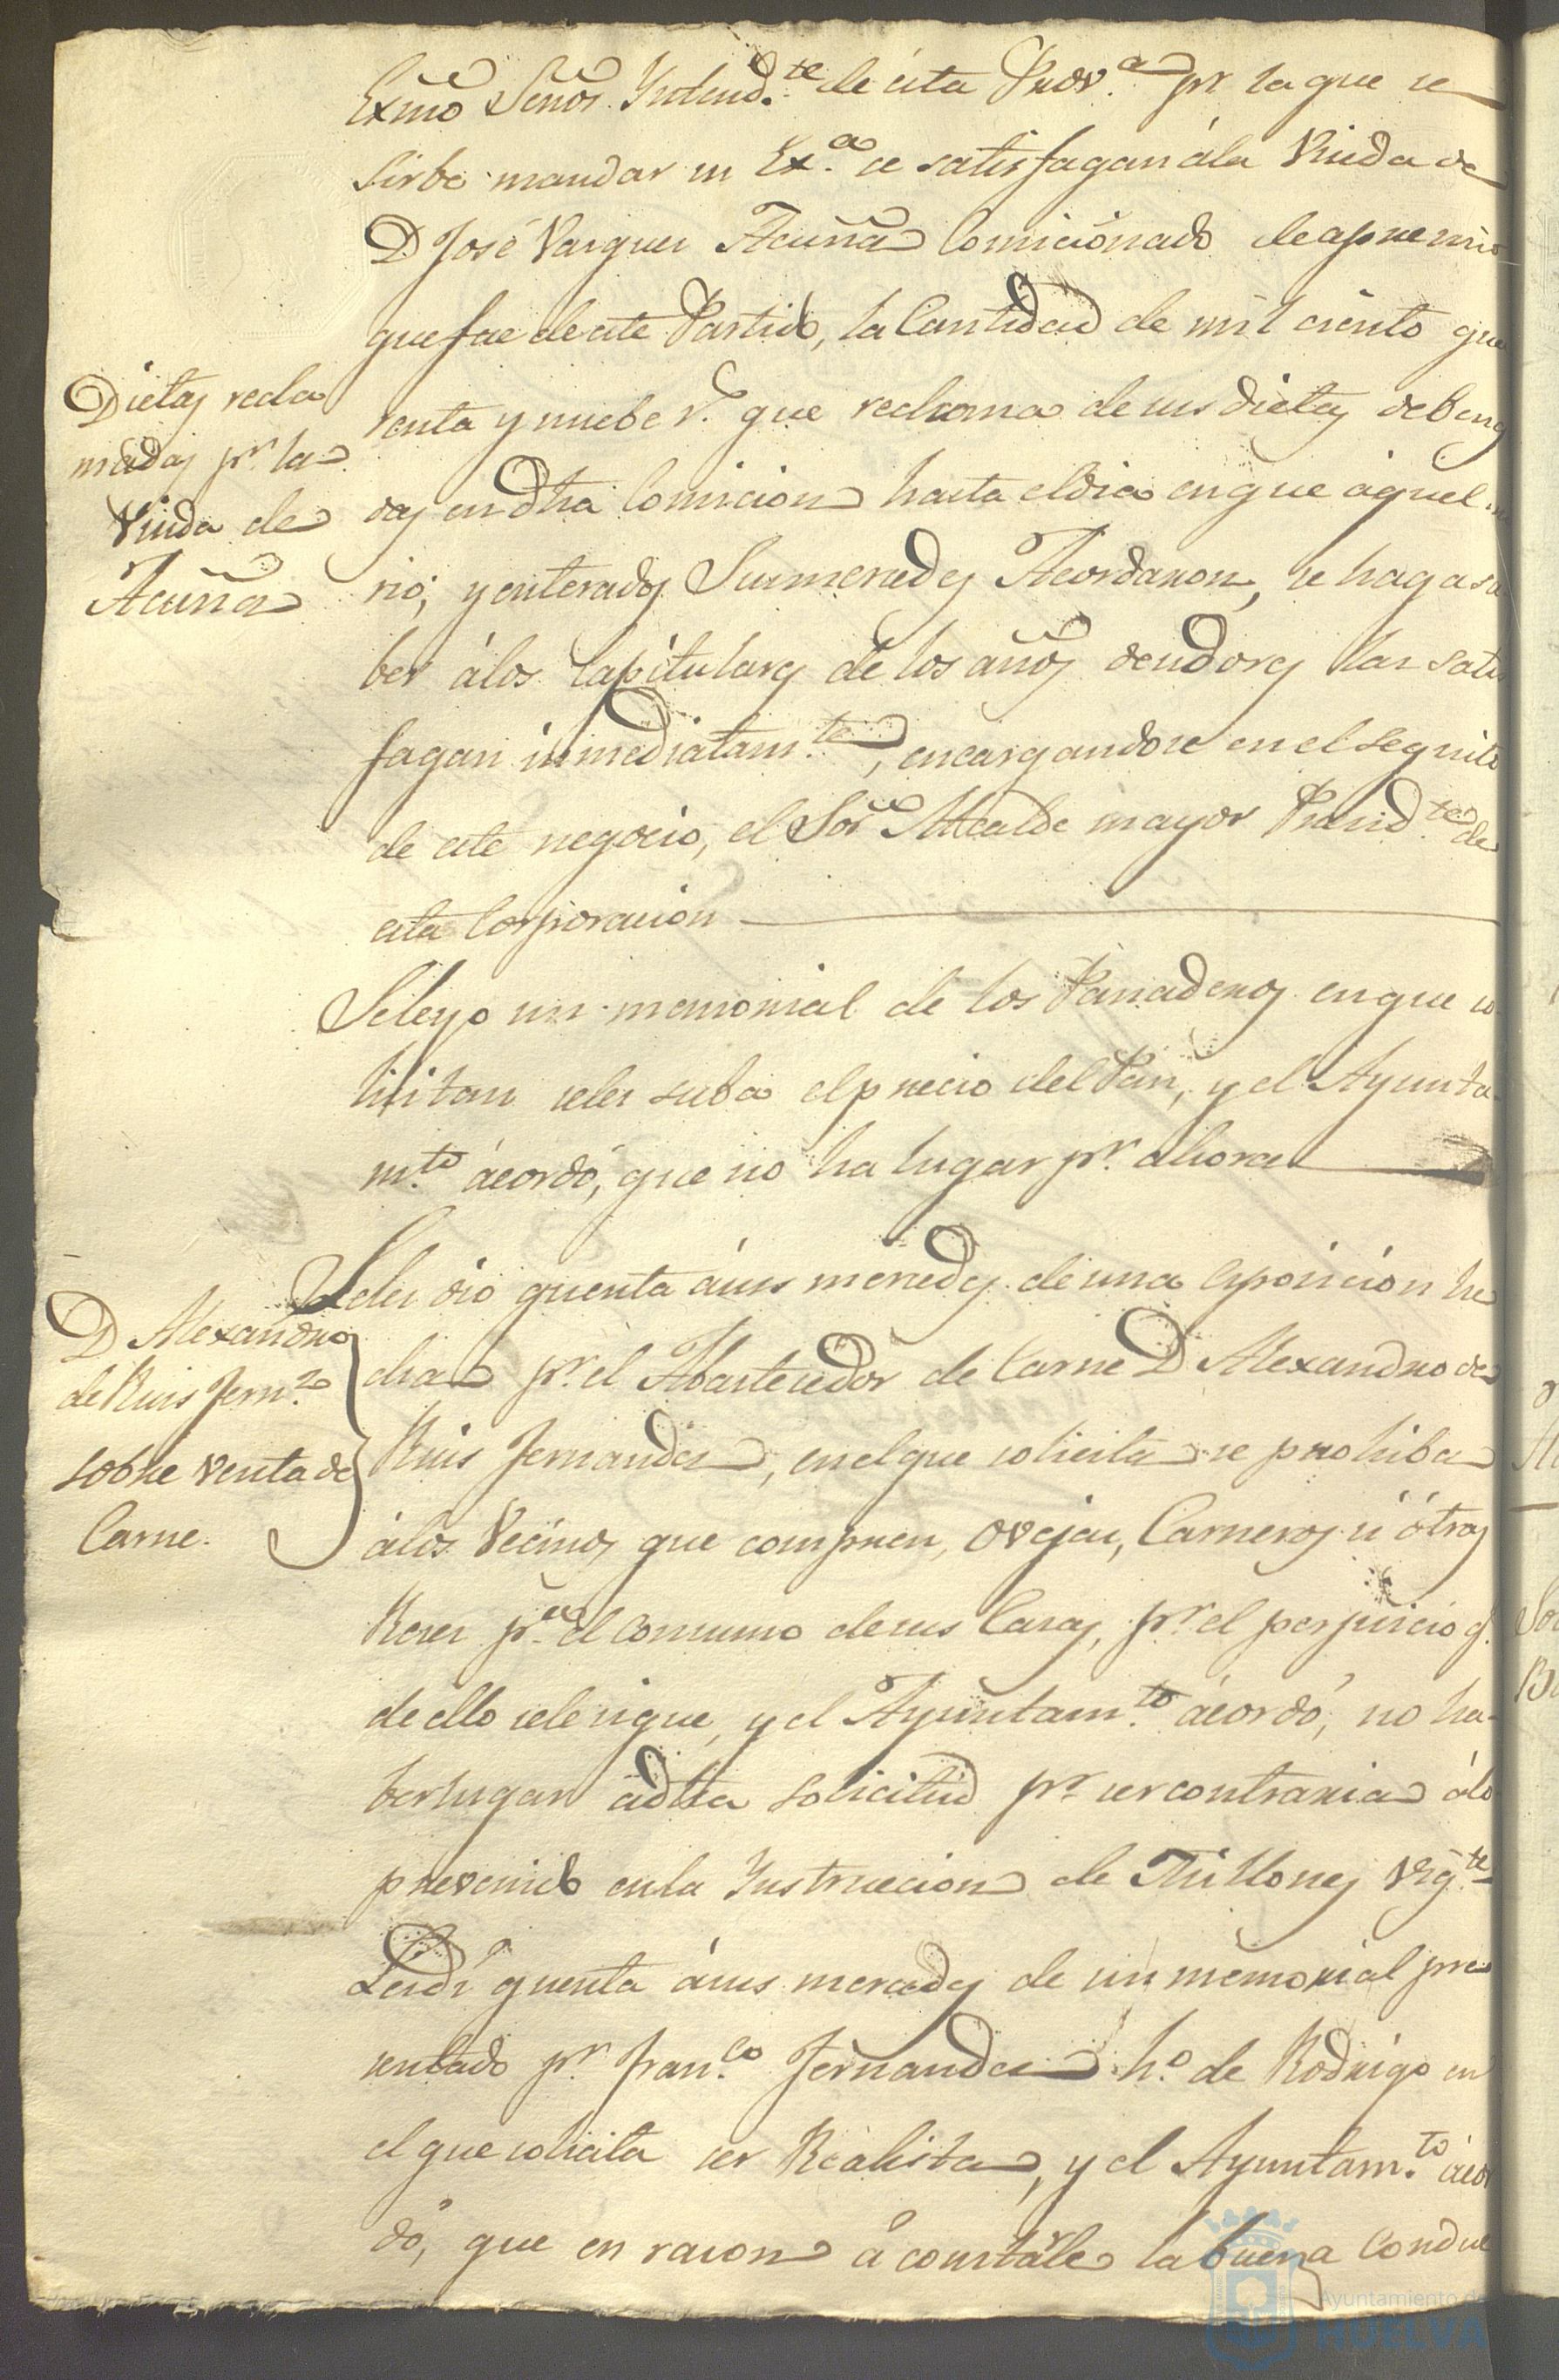 Exmo Señor Yntend.te de esta Prov.a pr. la que se
sirbe mandar su Ex.a se satisfagan á la Viuda de
D José Vasques Acuña Comicionado de apremio
que fue de este Partido, la Cantidad de mil ciento qua
renta y nuebe r.s que reclama de sus dietas debenga
Dietas recla
madas pr. la
Viuda de
Acuña
das en dha Comicion hasta el dia en que aquel mu
rió; y enterados Sus mercedes Acordaron, se haga sa
ber á los Capitulares de los años deudores las satis
fagan inmediatam.te, encargandose en el seguito
de este negocio, el Sor. Alcalde mayor Presid.te de
esta Corporacion
Se leyo un memorial de los Panaderos en que so
licitan se les suba el precio del Pan, y el Ayunta
m.to acordó, que no ha lugar pr. ahora
Se les dio quenta á sus mercedes de una esposicion he
D Alexandro
de Ruis Fern.z
sobre venta de
Carne.
cha pr. el Abastecedor de Carne D Alexandro de
Ruis Fernandes, en el que solicita se prohiba
á los Vecinos que compren, Ovejas, Carneros ú otras
Reses p.a el consumo de sus Casas, pr. el perjuicio q.
de ello se le sigue, y el Ayuntam.to acordó, no ha-
ber lugar á dha solicitud pr. ser contraria á lo
prevenido en la Ynstruccion de Millones vig.te
Les dí quenta á sus mercedes de un memorial pre
sentado pr. Fran.co Fernandes h.o de Rodrigo en
el que solicita ser Realista, y el Ayuntam.to acor
dó, que en rason á constarle la buena Conduc
Ayuntamiento de
HUELVA